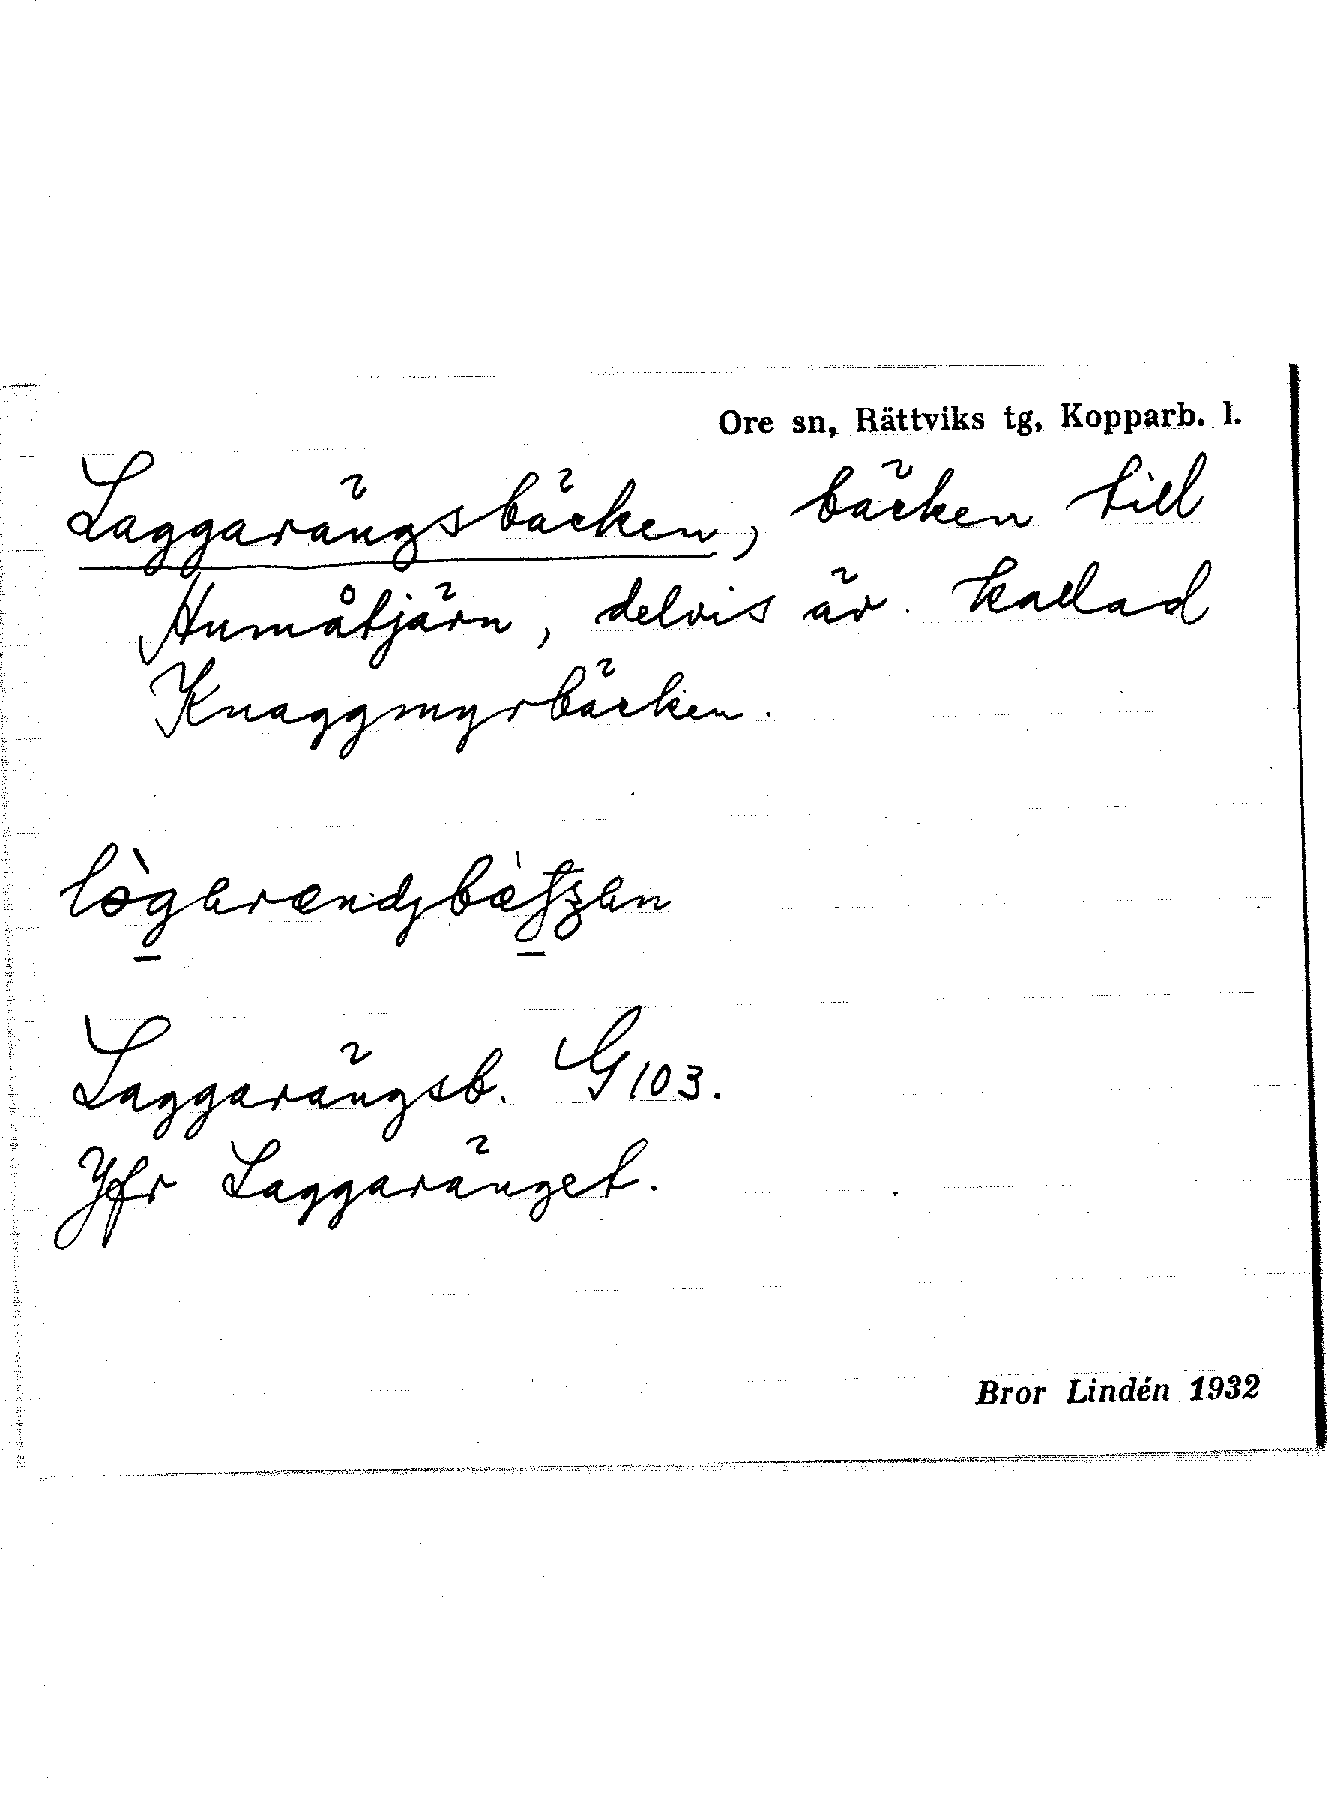 Ore sn, Rättviks tg, Kopparb. l.
Laggarängsbäcken, bäcken till
Humåtjärn, delvis äv. kallad
Knaggmyrbäcken.
Laggarängsb. G 103.
Jfr Laggaränget.
Bror Lindén 1932